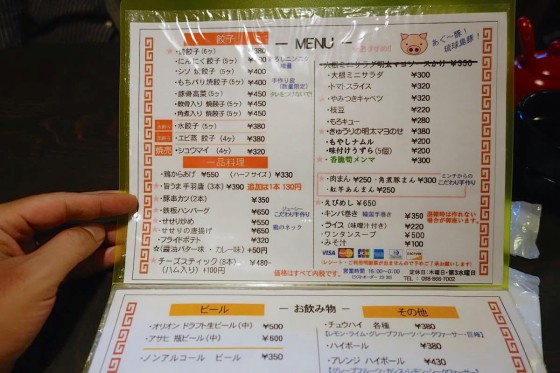 餃子
― MENU ―
あぐ～豚!
琉球島豚!
・焼餃子(6ヶ) ¥380
・にんにく餃子(6ヶ) ¥400
・シソ 焼餃子(5ヶ) ¥400
・もちパリ焼餃子(5ヶ) ¥400
・豚骨高菜(5ヶ) ¥450
軟骨入り 焼餃子(5ヶ) ¥450
・角煮入り 焼餃子(5ヶ) ¥450
手作り皮
(数量限定)
タレをつけないで!
・水餃子(6ヶ) ¥380
・エビ蒸 餃子(4ヶ) ¥380
焼売
・シュウマイ(4ヶ) ¥380
一品料理
・鶏からあげ ¥550 (ハーフサイズ) ¥330
・旨うま 手羽唐(3本) ¥390 追加は1本 130円
・豚串カツ(2本) ¥350
・鉄板ハンバーグ ¥650
・せせり炒め ¥550
・せせりの唐揚げ ¥650
・フライドポテト ¥320
☆(醤油バター味 ・ カレー味) +50円
チーズスティック(8本) ¥480
(ハム入り) +100円
ジューシー
こだわり手作り
鶏のネック
価格はすべて内税です。
・大根ミニサラダ ¥300
・トマト スライス ¥320
・やみつきキャベツ ¥320
・枝豆 ¥220
・もろキュー ¥280
・きゅうりの明太マヨのせ ¥300
・もやしナムル ¥300
・味付けうずら(5個) ¥220
・香脆筍メンマ ¥300
・肉まん ¥250 ・角煮豚まん ¥300
・紅芋あんまん ¥250
ミンチからの
こだわり手作り
・えびめし ¥650
・キンパ巻き 韓国手巻き ¥350
・ライス (味噌汁付き) ¥220
・ワンタンスープ ¥500
・みそ汁 ¥100
混雑時は作れない
場合が御座います。
営業時間
定休日:木曜日・第3水曜日
TEL: 098-866-7002
― お飲み物 ―
ビール
・オリオン ドラフト生ビール(中) ¥500
・アサヒ 瓶ビール(中) ¥600
・ノンアルコール ビール ¥350
その他
・チュウハイ 各種 ¥380
・ハイボール ¥380
・アレンジ ハイボール ¥430